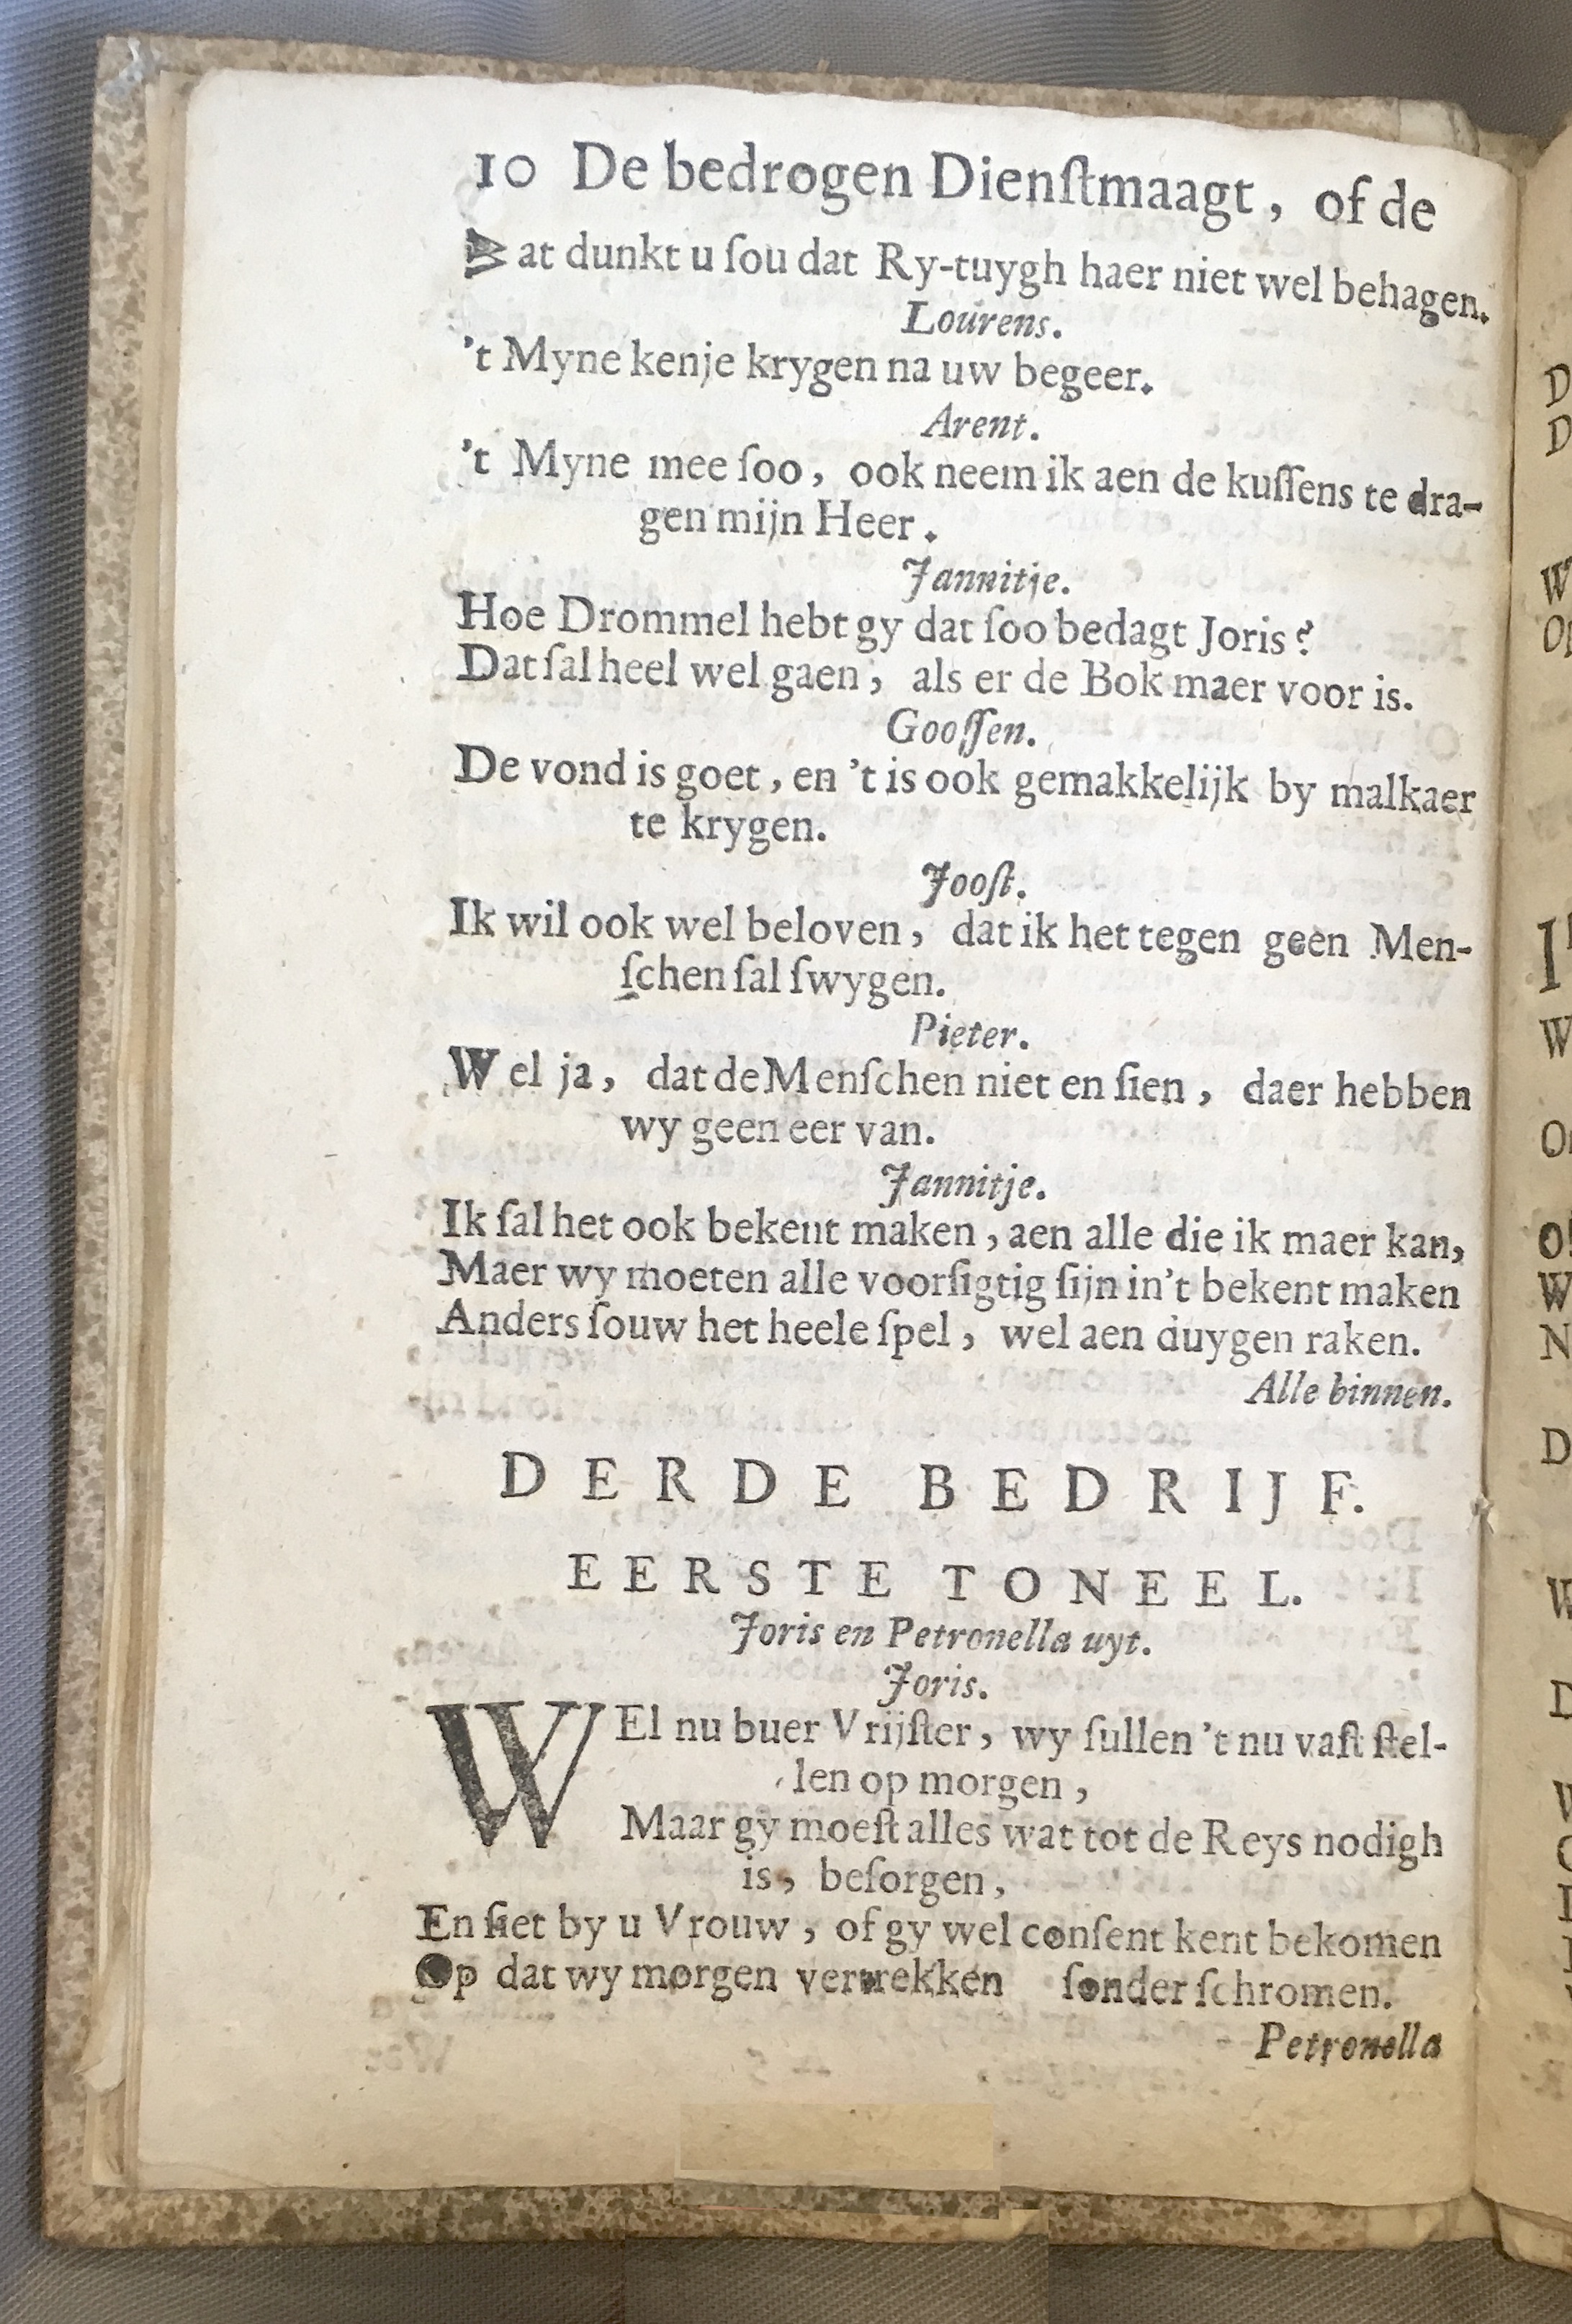 10 De bedrogen Dienſtmaagt, of de
Wat dunkt u ſou dat Ry-tuygh haer niet wel behagen.
Lourens.
't Myne kenje krygen na uw begeer.
Arent.
't Myne mee ſoo, ook neem ik aen de kuſſens te dra-
gen mijn Heer.
Jannitje.
Hoe Drommel hebt gy dat ſoo bedagt Joris?
Dat ſal heel wel gaen, als er de Bok maer voor is.
Gooſſen.
De vond is goet, en 't is ook gemakkelijk by malkaer
te krygen.
Jooſt.
Ik wil ook wel beloven, dat ik het tegen geen Men-
ſchen ſal ſwygen.
Pieter.
Wel ja, dat de Menſchen niet en ſien, daer hebben
wy geen eer van.
Jannitje.
Ik ſal het ook bekent maken, aen alle die ik maer kan,
Maer wy moeten alle voorſigtig ſijn in't bekent maken
Anders ſouw het heele ſpel, wel aen duygen raken.
Alle binnen.
DERDE BEDRIJF.
EERSTE TONEEL.
Joris en Petronella uyt.
Joris.
WEl nu buer Vrijſter, wy ſullen 't nu vaſt ſtel-
len op morgen,
Maar gy moeſt alles wat tot de Reys nodigh
is, beſorgen,
En ſiet by u Vrouw, of gy wel conſent kent bekomen
Op dat wy morgen vertrekken ſonder ſchromen.
Petronella